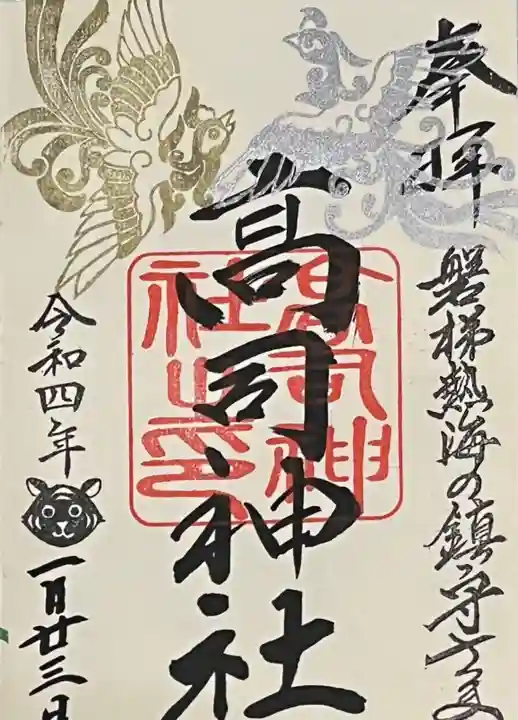 奉拝
磐梯熱海の鎮守さま
高司神社
高司神
社之印
令和四年
一月廿三日